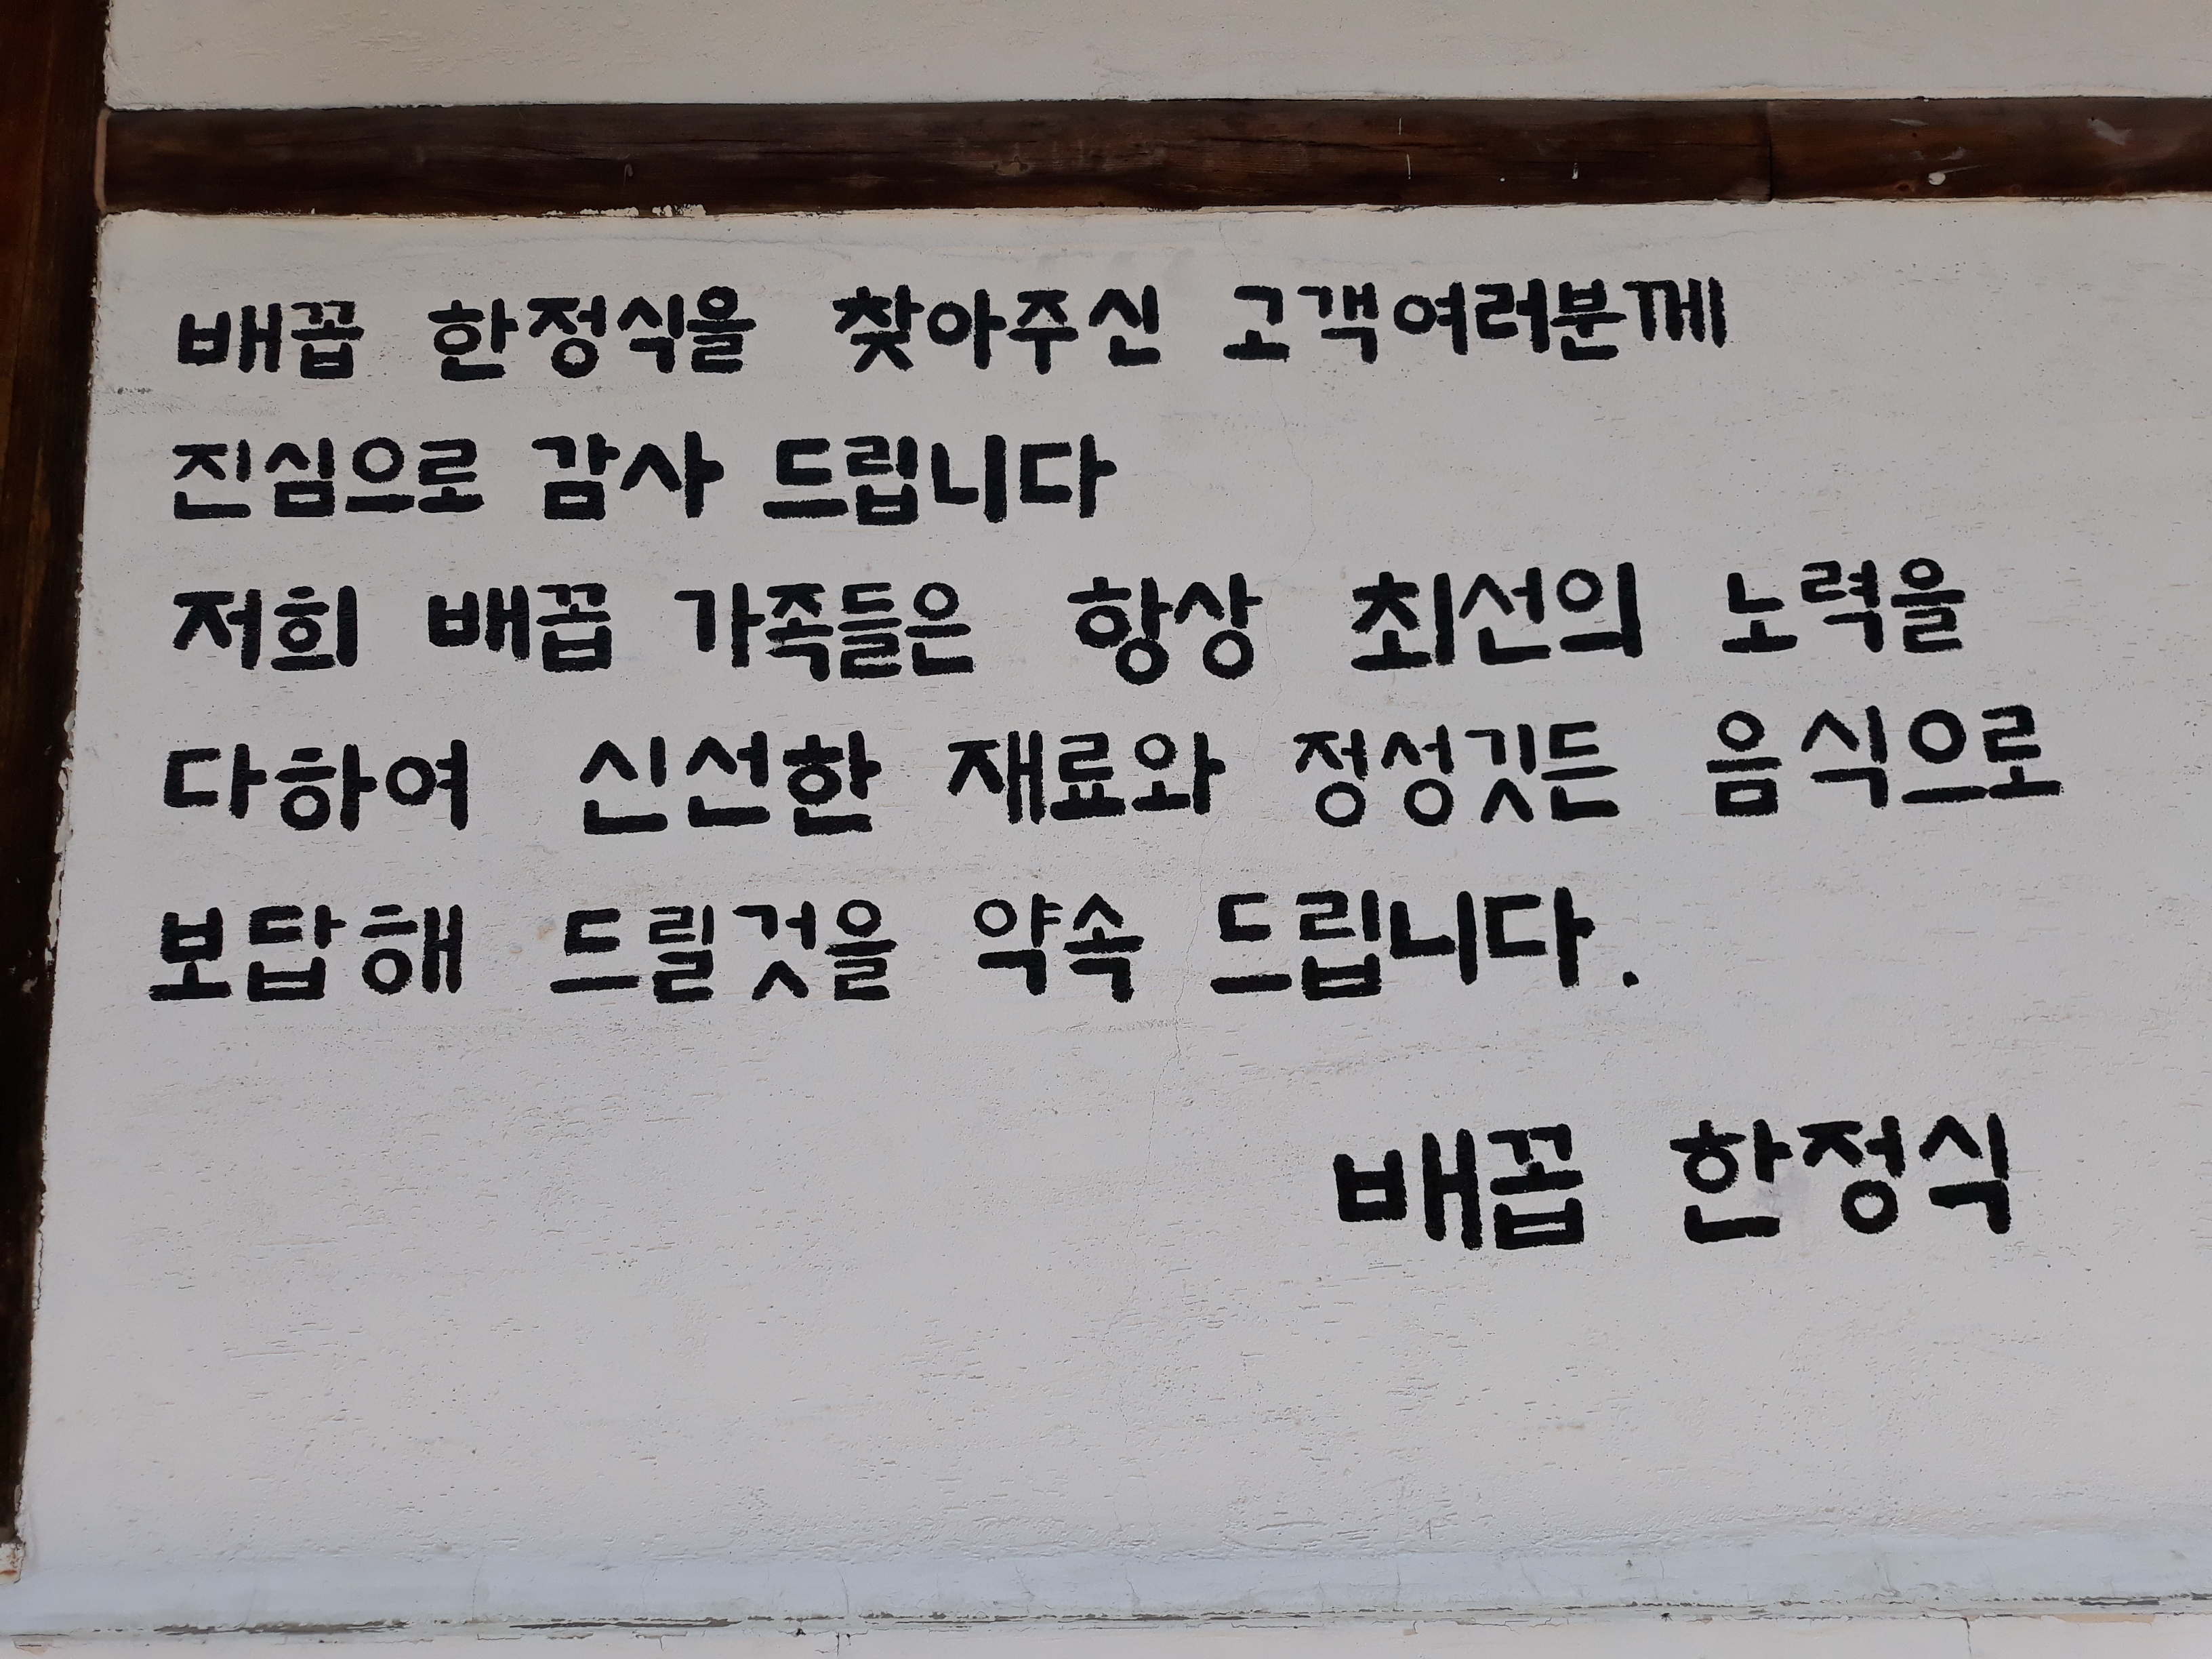 배꼽 한정식을 찾아주신 고객여러분께
진심으로 감사 드립니다
저희 배꼽 가족들은 항상 최선의 노력을
다하여 신선한 재료와 정성깃든 음식으로
보답해 드릴것을 약속 드립니다.
배꼽 한정식